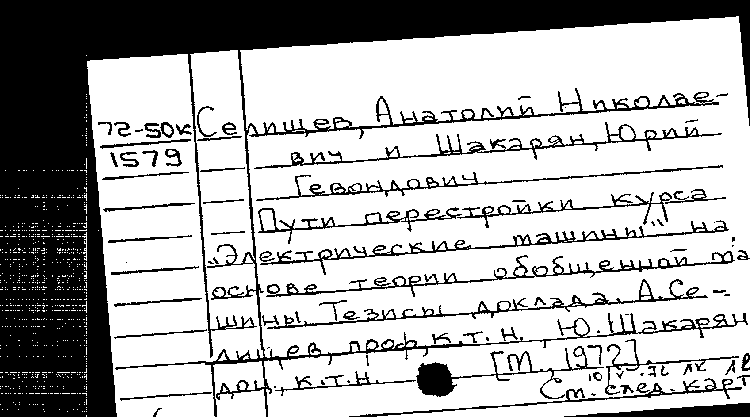 72-50к Селищев, Анатолий Николае-
1579 вич и Шакарян, Юрий
Гевондович
Пути перестройки курса
"Электрические машины" на
основе теории обобщенной ма
шины. Тезисы доклада. А.Се-
лищев, проф, к.т.н., Ю.Шакарян
доц., к.т.н. [М., 1972].
См. след. карт